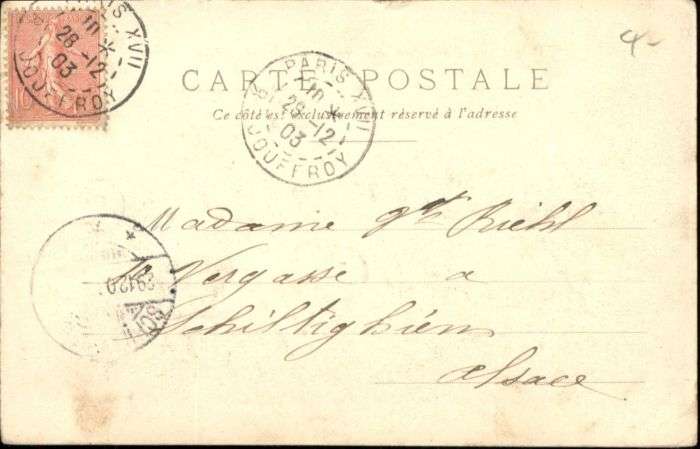 PARIS XVII
28 -12
03
JOUFFROY
10
4-
CARTE POSTALE
Ce côté est exclusivement réservé à l'adresse
PARIS XVII
28 -12
03
JOUFFROY
Madame Riehl
Vergasse a
Schiltighiem
Alsace
29.12.0